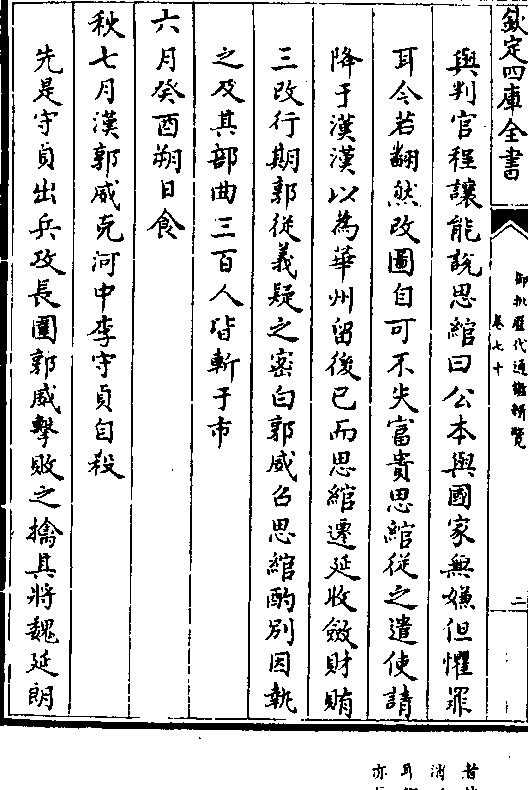 欽定四庫全書
御批歷代通鑑輯覽
卷七十
二
與判官程讓能說思綰曰公本與國家無嫌但懼罪
耳今若翻然改圖自可不失富貴思綰從之遣使請
降于漢漢以為華州留後已而思綰遷延收斂財賄
三改行期郭從義疑之密白郭威召思綰酌別因執
之及其部曲三百人皆斬于市
六月癸酉朔日食
秋七月漢郭威克河中李守貞自殺
先是守貞出兵攻長圍郭威擊敗之擒其將魏延朗